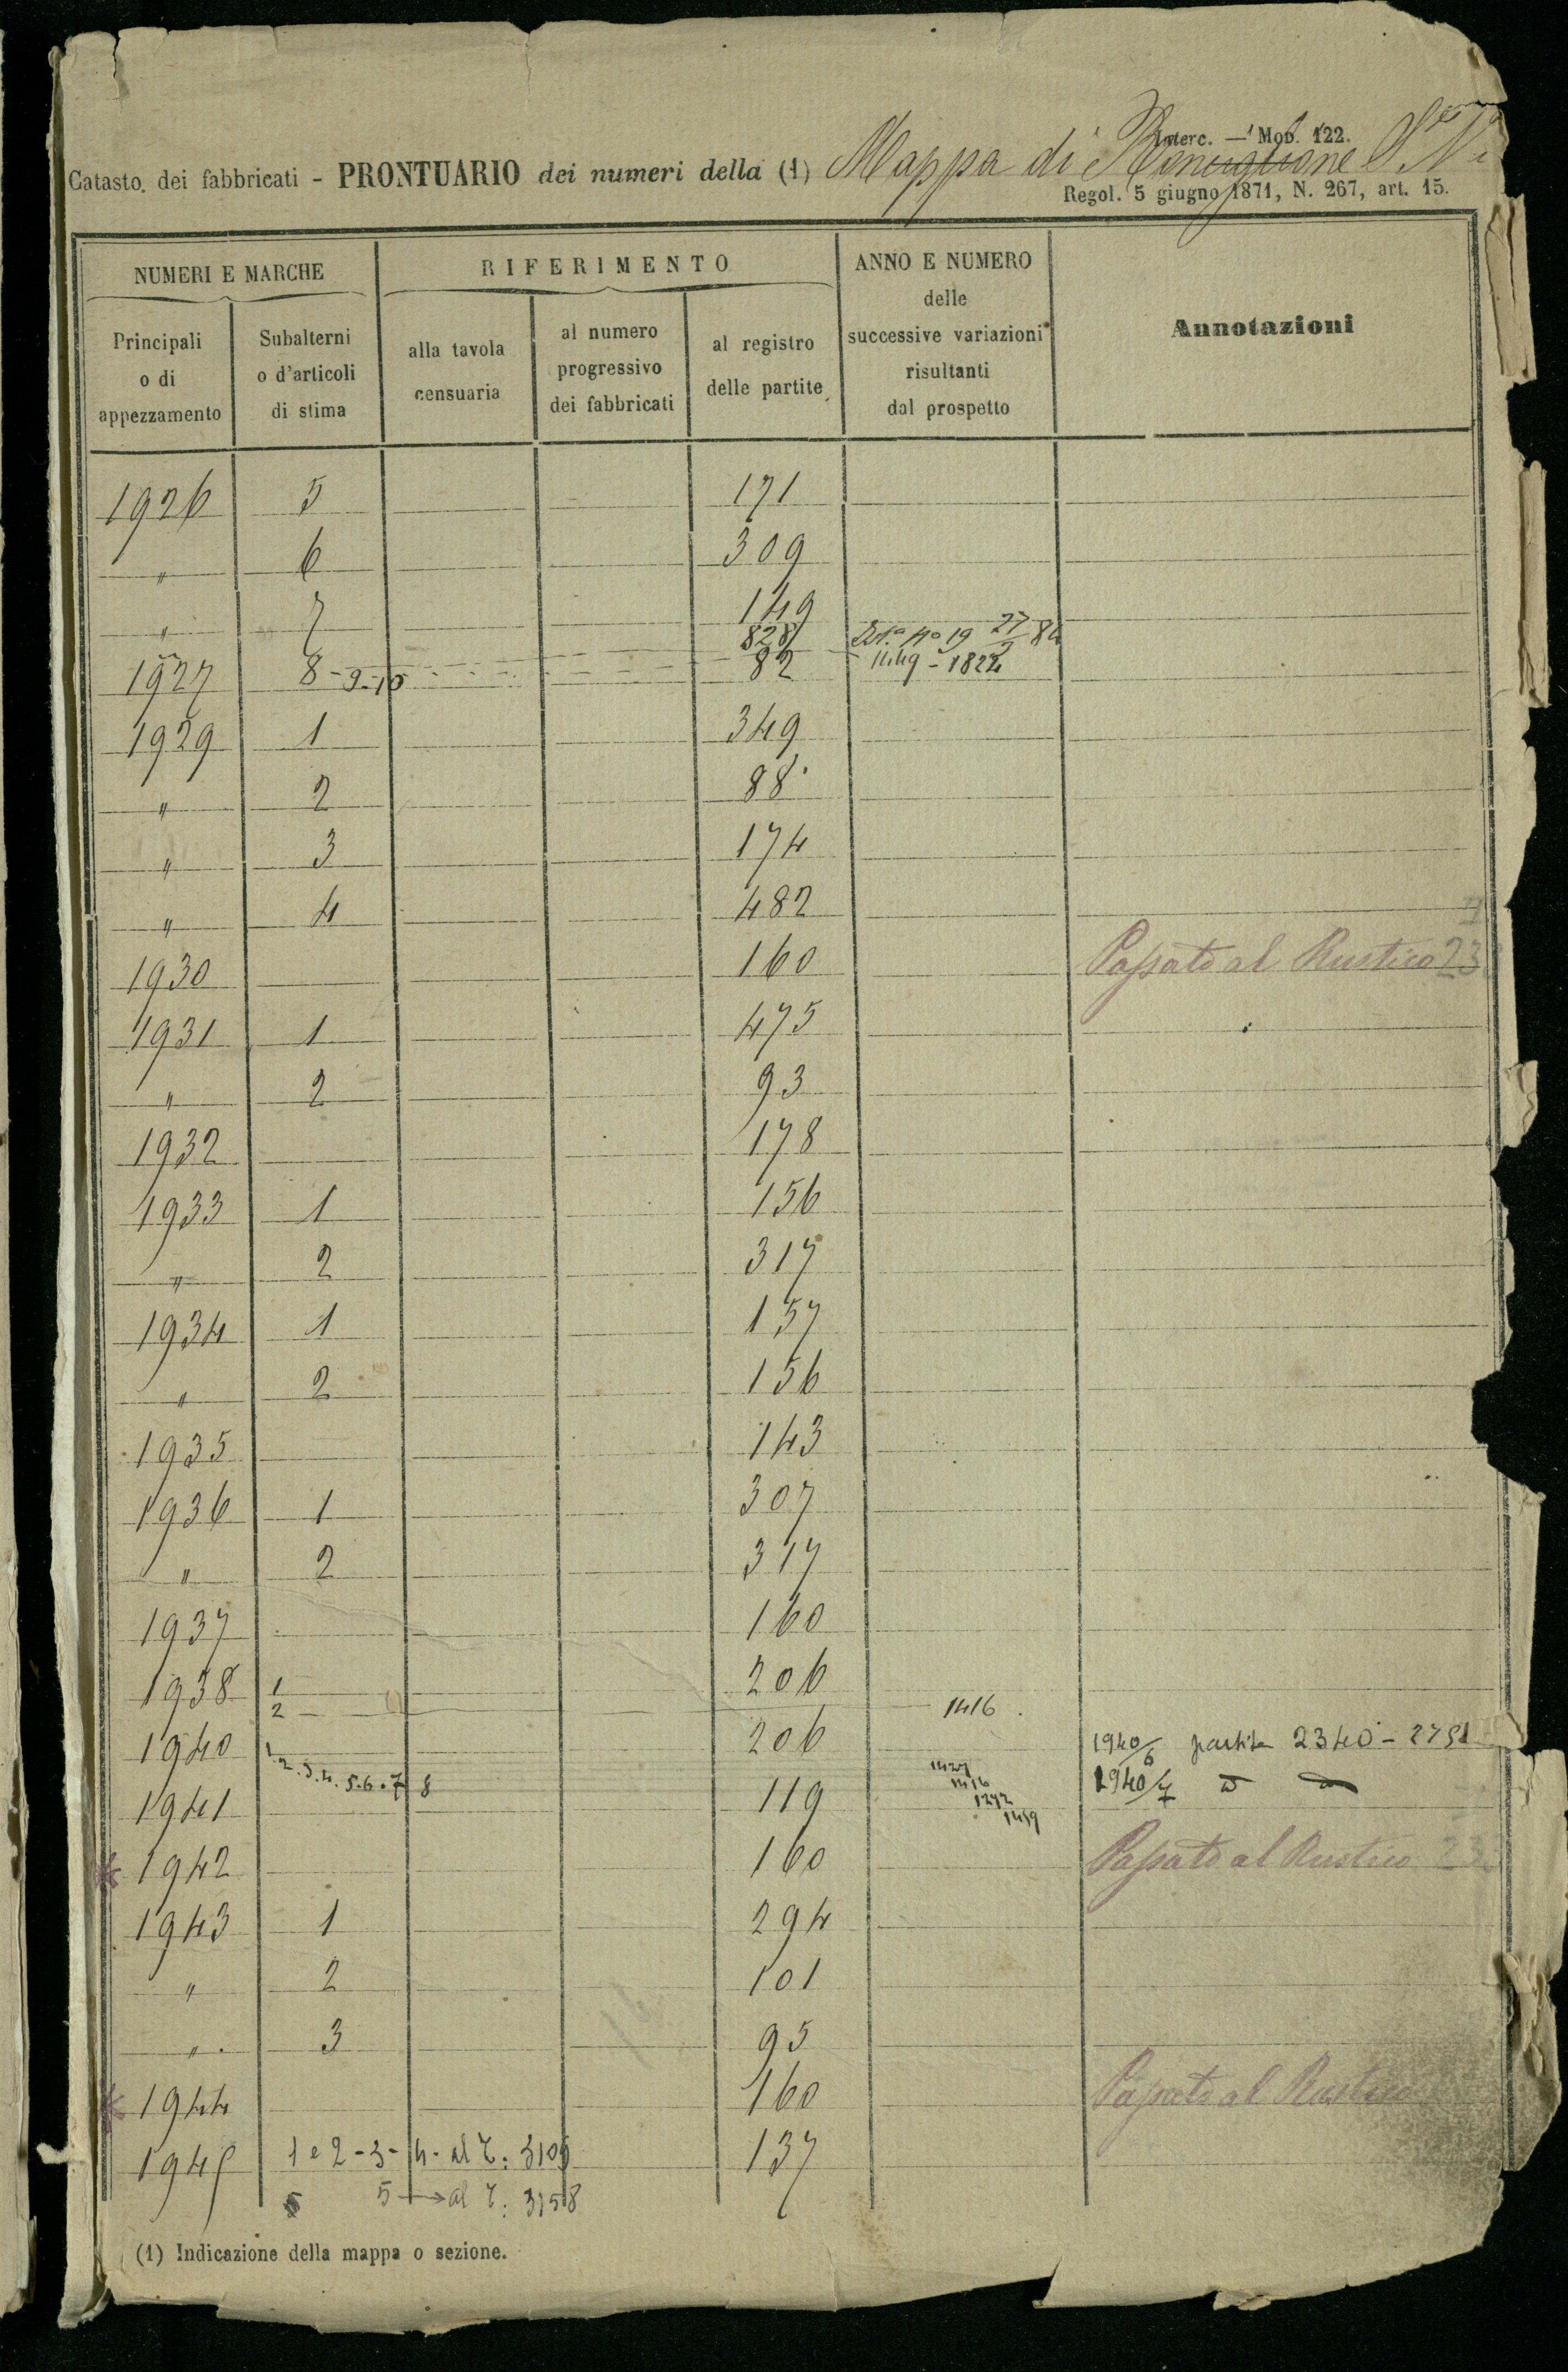 Interc. — Mod. 122.
Catasto dei fabbricati - PRONTUARIO dei numeri della (1) Mappa di Ronciglione
Regol. 5 giugno 1871, N. 267, art. 15.
NUMERI E MARCHE RIFERIMENTO ANNO E NUMERO delle successive variazioni risultanti dal prospetto Annotazioni
Principali o di appezzamento Subalterni o d'articoli di stima alla tavola censuaria al numero progressivo dei fabbricati al registro delle partite
1926 5 171
" 6 309
" 7 149
828 19 27
1927 8-9-10 82 1449 - 1822
1929 1 349
" 2 88
" 3 174
" 4 482
1930 160 Passato al Rustico 23
1931 1 475
" 2 93
1932 178
1933 1 156
" 2 317
1934 1 157
" 2 156
1935 143
1936 1 307
" 2 317
1937 160
1938 1 206
2 1416
1940 1.2.3.4.5.6.7 8 206 1940/6 partita 2340 - 2751
1416 1940/7
1941 119 1292
1459
* 1942 160 Passato al Rustico 23
1943 1 294
" 2 101
" 3 95
* 1944 160 Passato al Rustico
1945 1 e 2-3-4- al T: 3105 137
5 → al T: 3158
(1) Indicazione della mappa o sezione.